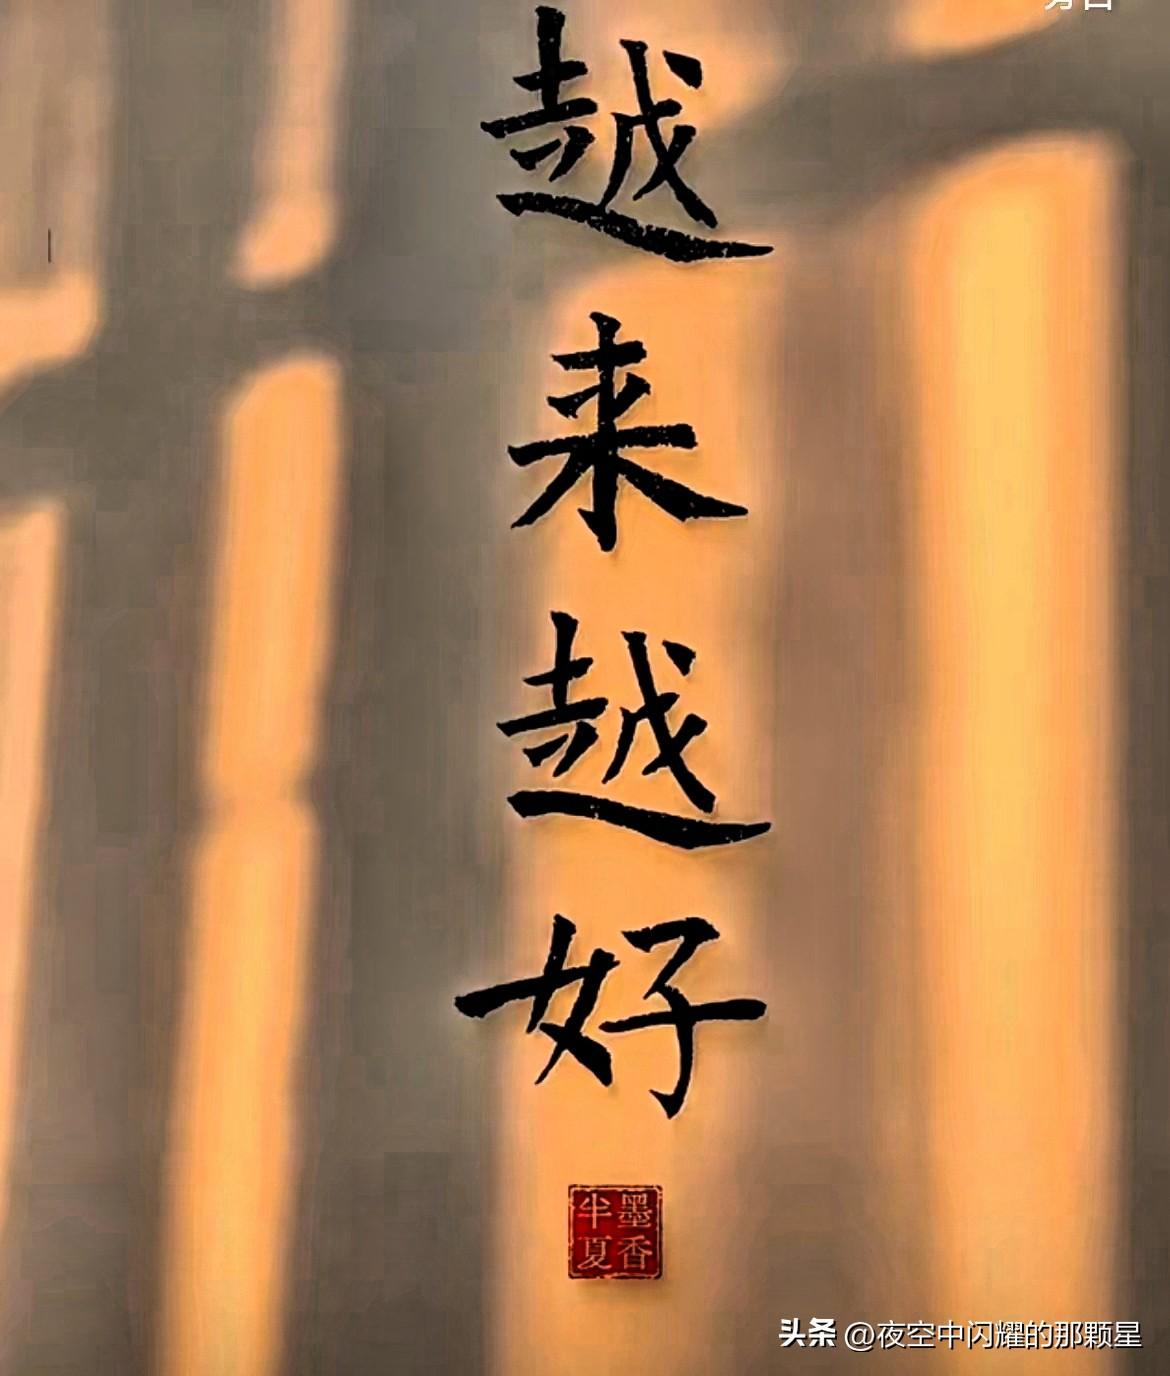 越
来
越
好
墨香
半夏
头条 @夜空中闪耀的那颗星